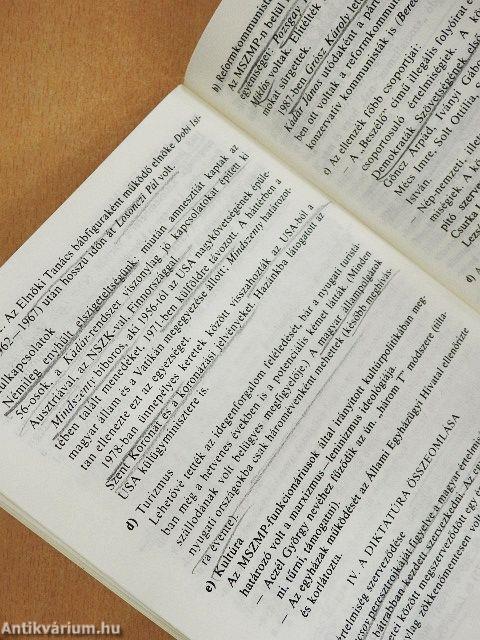 Az Elnöki Tanács bábfiguraként működő elnöke Dobi Ist-
1967) után hosszú időn át Losonczi Pál volt.
ülkapcsolatok
Némileg enyhült elszigeteltségünk: miután amnesztiát kaptak az
56-osok, a Kádár-rendszer viszonylag jó kapcsolatokat épített ki
Ausztriával, az NSZK-val, Finnországgal.
Mindszenty bíboros, aki 1956-tól az USA nagykövetségének épüle-
tében talált menedéket, 1971-ben külföldre távozott. A háttérben a
magyar állam és a Vatikán megegyezése állott; Mindszenty határozot-
tan ellenezte ezt az egyességet.
1978-ban ünnepélyes keretek között visszahozták az USA-ból a
Szent Koronát és a koronázási jelvényeket. Hazánkba látogatott az
USA külügyminisztere is.
d) Turizmus
Lehetővé tették az idegenforgalom fellendedését, bár a nyugati turistá-
ban még a hetvenes években is a potenciális kémet látták. Minden
szállodának volt belügyes megfigyelője. A magyar állampolgárok
nyugati országokba csak háromévenként mehettek (később megbízás-
ra évente).
e) Kultúra
Az MSZMP-funkcionáriusok által irányított kultúrpolitikában meg-
határozó volt a marxizmus – leninizmus ideológiája.
– Aczél György nevéhez fűződik az ún. „három T" módszere (tilta-
ni, tűrni, támogatni).
– Az egyházak működését az Állami Egyházügyi Hivatal ellenőrizte
és korlátozta.
IV. A DIKTATÚRA ÖSSZEOMLÁSA
értelmiség szerveződése
peresztrojkáját figyelve a magyar értelmi
bátrabban kezdett szervezkedni. Az
között megszerveződött egy
zökkenőmentesen
b) Reformkommunist
Az MSZMP-n belül
egyéniségei: Pozsgay
Miklós voltak. Eltérő
mokat sürgettek.
1987-ben Grósz Károly lett
Kádár János utódaként a párt
ben ott voltak a reformkommun
konzervatív kommunisták is (Berec
c) Az ellenzék főbb csoportjai:
– A „Beszélő" című illegális folyóirat
csoportosuló értelmiségiek. A
Demokraták Szövetségének első
Göncz Árpád, Iványi Gábo
Mécs Imre, Solt Ottília, S
István.
– Nép-nemzeti, illet
miségiek. A kö
pító szerve
Csurka I
Lezs
d) A
Antikvárium.hu